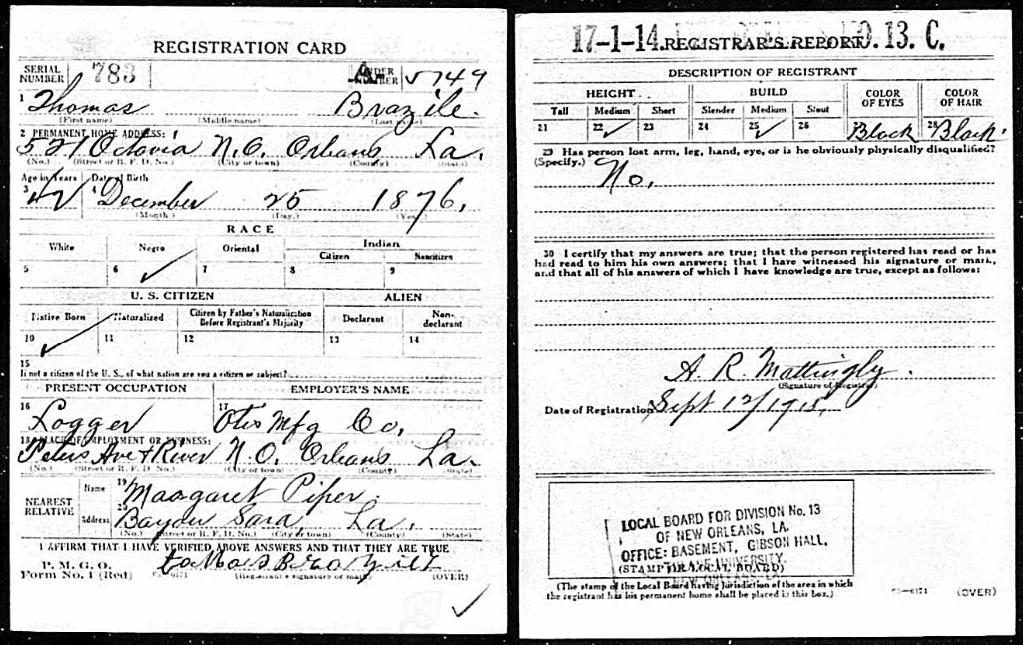 REGISTRATION CARD
SERIAL NUMBER 783 ORDER NUMBER 5749
1 Thomas Brazile.
(First name) (Middle name) (Last name)
2 PERMANENT HOME ADDRESS:
521 Octavia N.O. Orleans La.
(No.) (Street or R. F. D. No.) (City or town) (County) (State)
Age in Years Date of Birth
3 4 December 25 1876.
(Month.) (Day.) (Year.)
RACE
White Negro Oriental Indian
Citizen Noncitizen
5 6 ✓ 7 8 9
U. S. CITIZEN ALIEN
Native Born Naturalized Citizen by Father's Naturalization Before Registrant's Majority Declarant Non-declarant
10 ✓ 11 12 13 14
15
If not a citizen of the U. S., of what nation are you a citizen or subject?
PRESENT OCCUPATION EMPLOYER'S NAME
16 Logger 17 Otis Mfg Co.
18 PLACE OF EMPLOYMENT OR BUSINESS:
Peters Ave & River N.O. Orleans La.
(No.) (Street or R. F. D. No.) (City or town) (County) (State)
NEAREST RELATIVE
Name 19 Maagaret Piper.
Address 20 Bayou Sara, La.
(No.) (Street or R. F. D. No.) (City or town) (County) (State)
I AFFIRM THAT I HAVE VERIFIED ABOVE ANSWERS AND THAT THEY ARE TRUE
P. M. G. O.
Form No. 1 (Red) (Registrant's signature or mark) (OVER)
✓
17-1-14. REGISTRAR'S REPORT 13. C.
DESCRIPTION OF REGISTRANT
HEIGHT BUILD COLOR OF EYES COLOR OF HAIR
Tall Medium Short Slender Medium Stout
21 22 ✓ 23 24 25 ✓ 26 Black 28 Black.
29 Has person lost arm, leg, hand, eye, or is he obviously physically disqualified?
(Specify.) No.
30 I certify that my answers are true; that the person registered has read or has
had read to him his own answers; that I have witnessed his signature or mark,
and that all of his answers of which I have knowledge are true, except as follows:
A. R. Mattingly.
(Signature of Registrar)
Date of Registration Sept 12/1918.
LOCAL BOARD FOR DIVISION No. 13
OF NEW ORLEANS, LA.
OFFICE: BASEMENT, GIBSON HALL,
UNIVERSITY.
(STAMP OF LOCAL BOARD)
NEW ORLEANS LA
(The stamp of the Local Board having jurisdiction of the area in which
the registrant has his permanent home shall be placed in this box.)
(OVER)